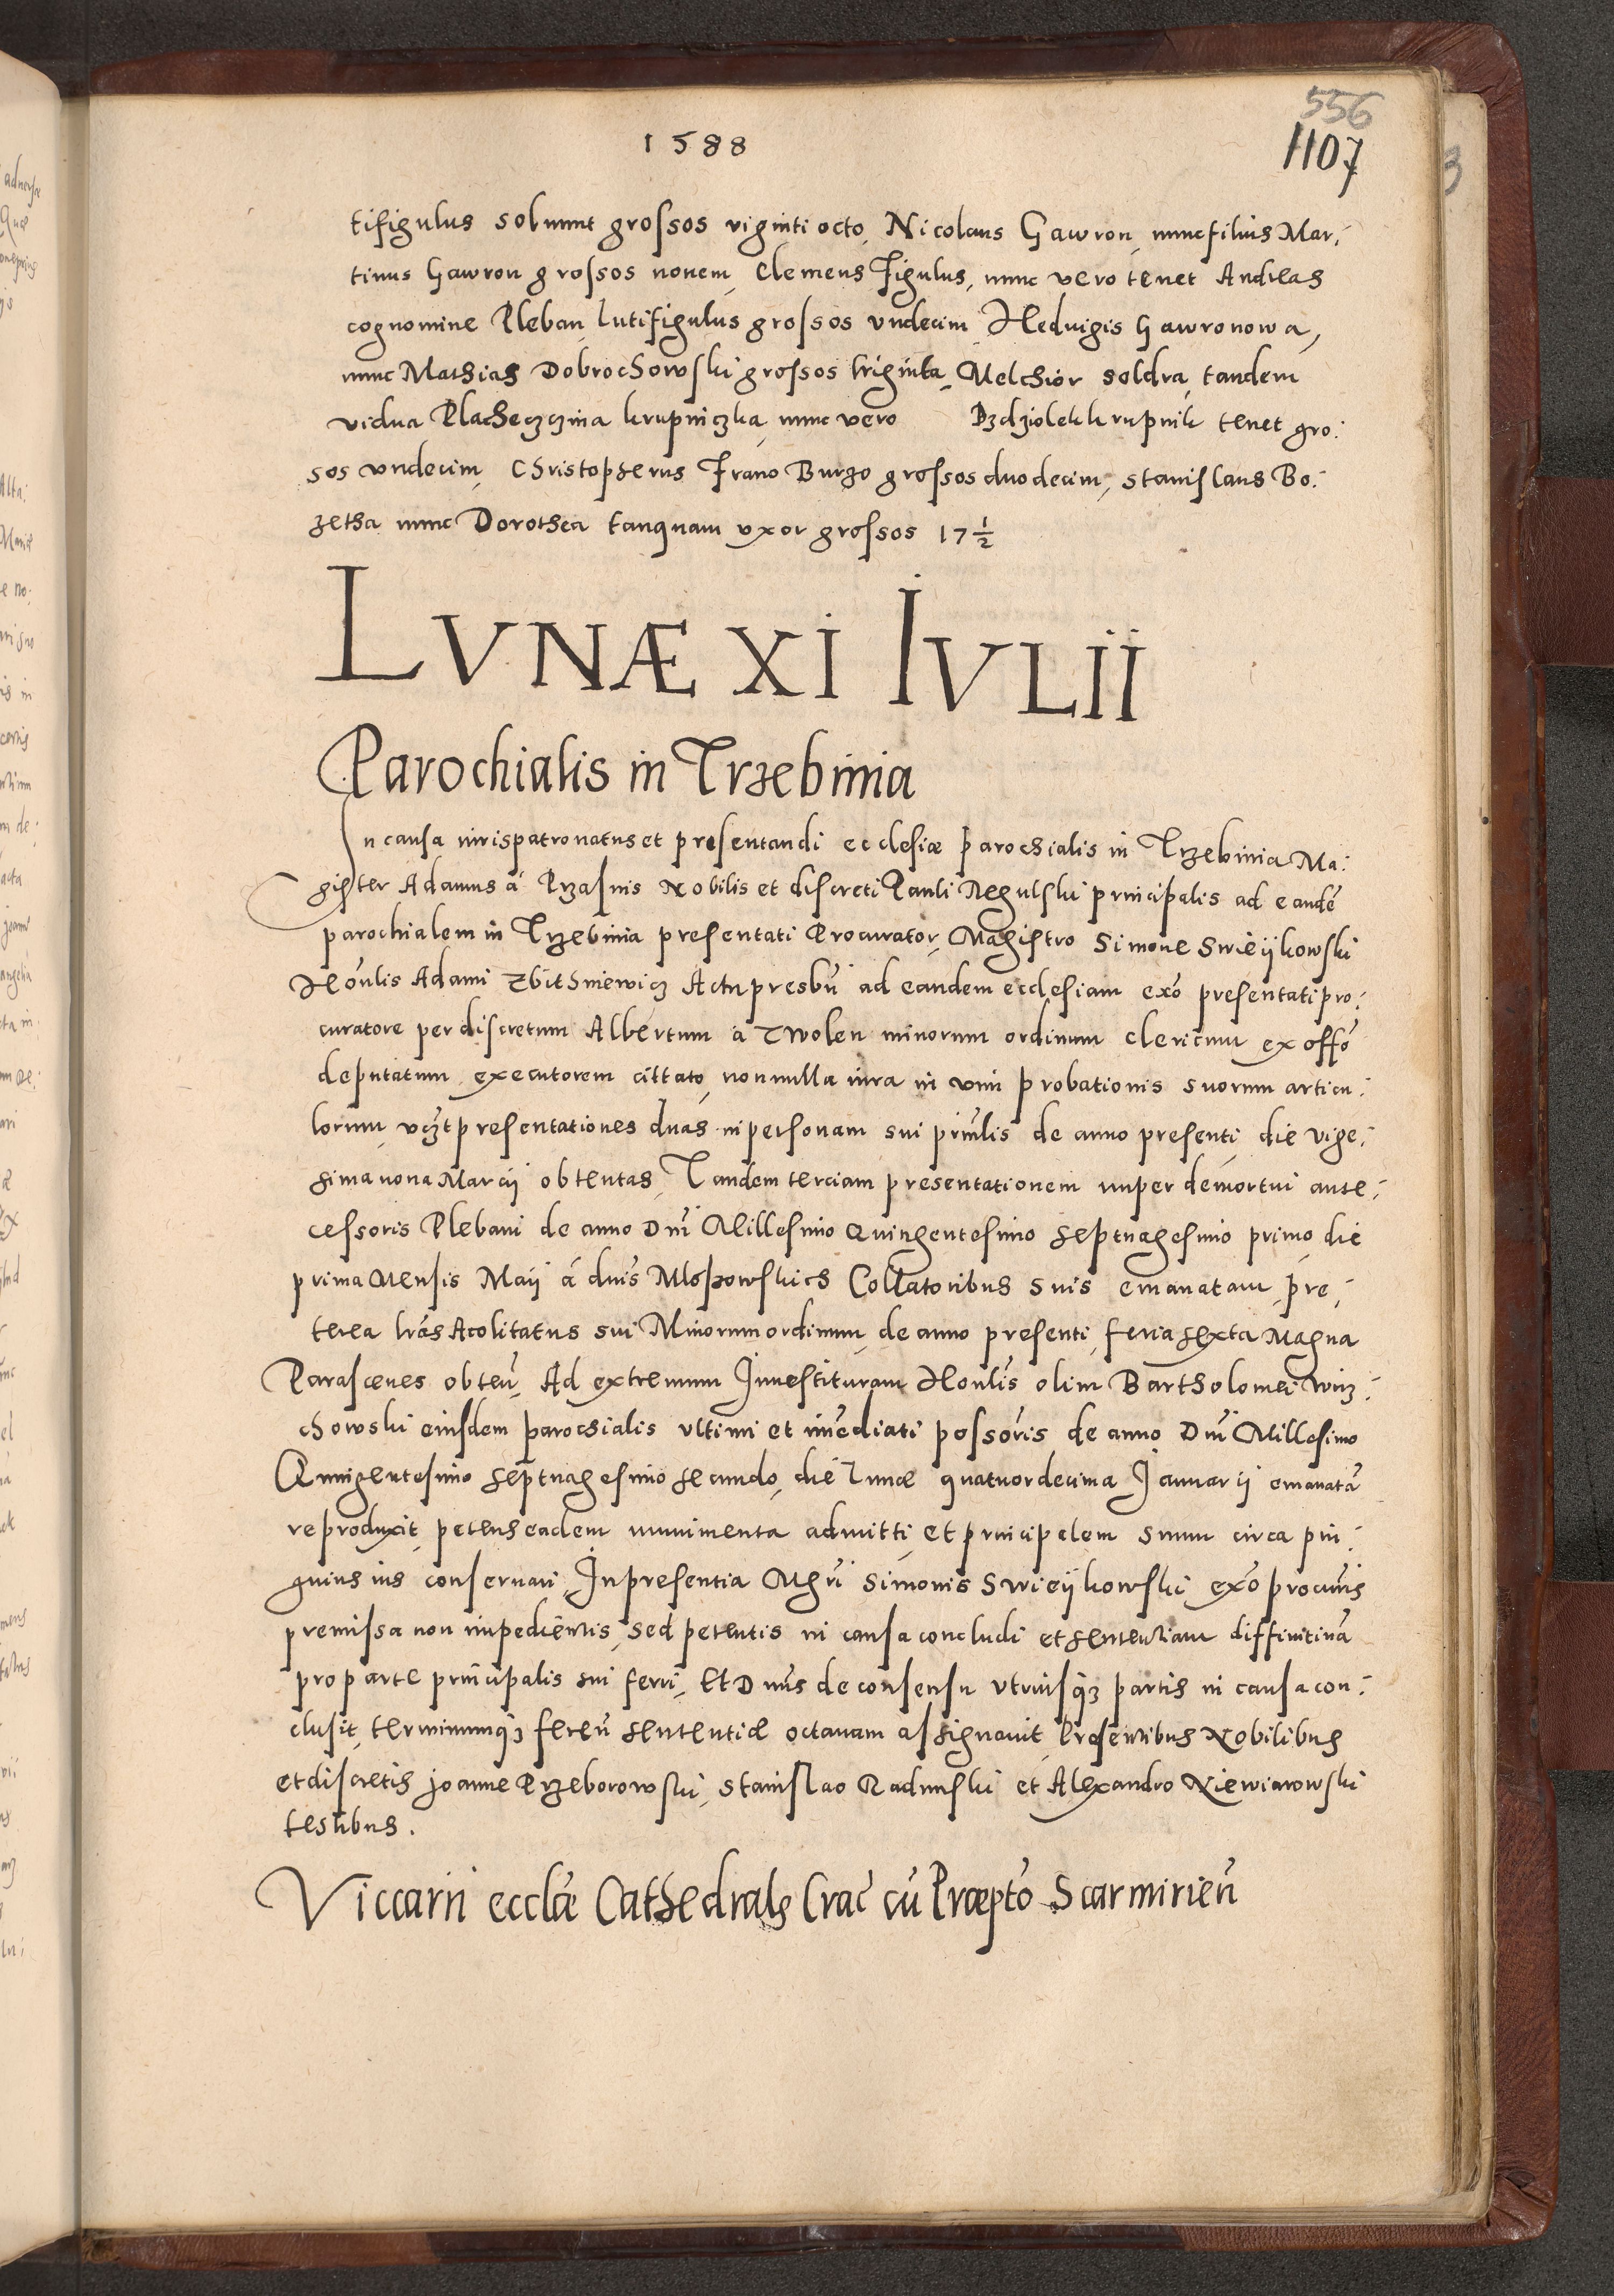 556
1588
1107
tifigulus soluunt grossos viginti octo, Nicolaus Gawron, nunc filius Mar:
tinus Gawron grossos novem, Clemens Figulus, nunc vero tenet Andreas
cognomine Pleban Lutifigulus grossos vndecim Heduigis Gawronowa,
nunc Mathias Dobrochowski grossos triginta, Melchior Soldra, tandem
vidua Placheczczina krupniczka, nunc vero Bzdziolek krupnik tenet gro:
sos vndecim, Christopherus Frano Burgo grossos duodecim, Stanislaus Bo:
zetha nunc Dorothea tanquam vxor grossos 17 1/2
LVNÆ XI IVLII
Parochialis in Trzebinia
In causa iurispatronatus et presentandi ecclesiæ parochialis in Trzebinia Ma:
gister Adamus á Przasnis Nobilis et discreti Pauli Regulski principalis ad eandẽ
parochialem in Trzebinia presentati Procurator, Magistro Simone Swieÿkowski
Honlis Adami Zbithniewicz Actu presbri ad eandem ecclesiam exo presentati pro:
curatore per discretum Albertum à Zwolen minorum ordinum clericum ex offo
deputatum executorem cittato, nonnulla iura in vim probationis suorum articu:
lorum, vczt presentationes duas in personam sui prinlis de anno presenti die vige:
sima nona Marcij obtentas, Tandem terciam presentationem nuper demortui ante:
cessoris Plebani de anno Dni Millesimo Quingentesimo septuagesimo primo die
prima Mensis Maij á dnis Mloszowskies Collatoribus suis emanatam, pre:
terea lras Acolitatus sui Minorum ordinum, de anno presenti, feria sexta Magna
Parasceues obten, Ad extremum Inuestituram Honlis olim Bartholomei Winz:
chowski eiusdem parochialis vltimi et imediati possoris de anno Dni Millesimo
Quingentesimo septuagesimo secundo, die Lunæ quatuordecima Januarij emanatã
reproduxit, petens eadem munimenta admitti, et principelem suum circa pin:
guius ius conseruari, In presentia Mgri Simonis Swieÿkowski exo procuris
premissa non impedientis, sed petentis in causa concludi et sententiam diffinitiuã
pro parte principalis sui ferri, Et Dnus de consensu vtriusqȝ partis in causa con:
clusit, terminumqȝ feren sententiæ octauam assignauit, Presentibus Nobilibus
et discretis Joanne Przeborowski, Stanislao Radunski et Alexandro Niewiarowski
testibus.
Viccarij ecclæ Cathedralis Crac cũ Præpto Scarmirien